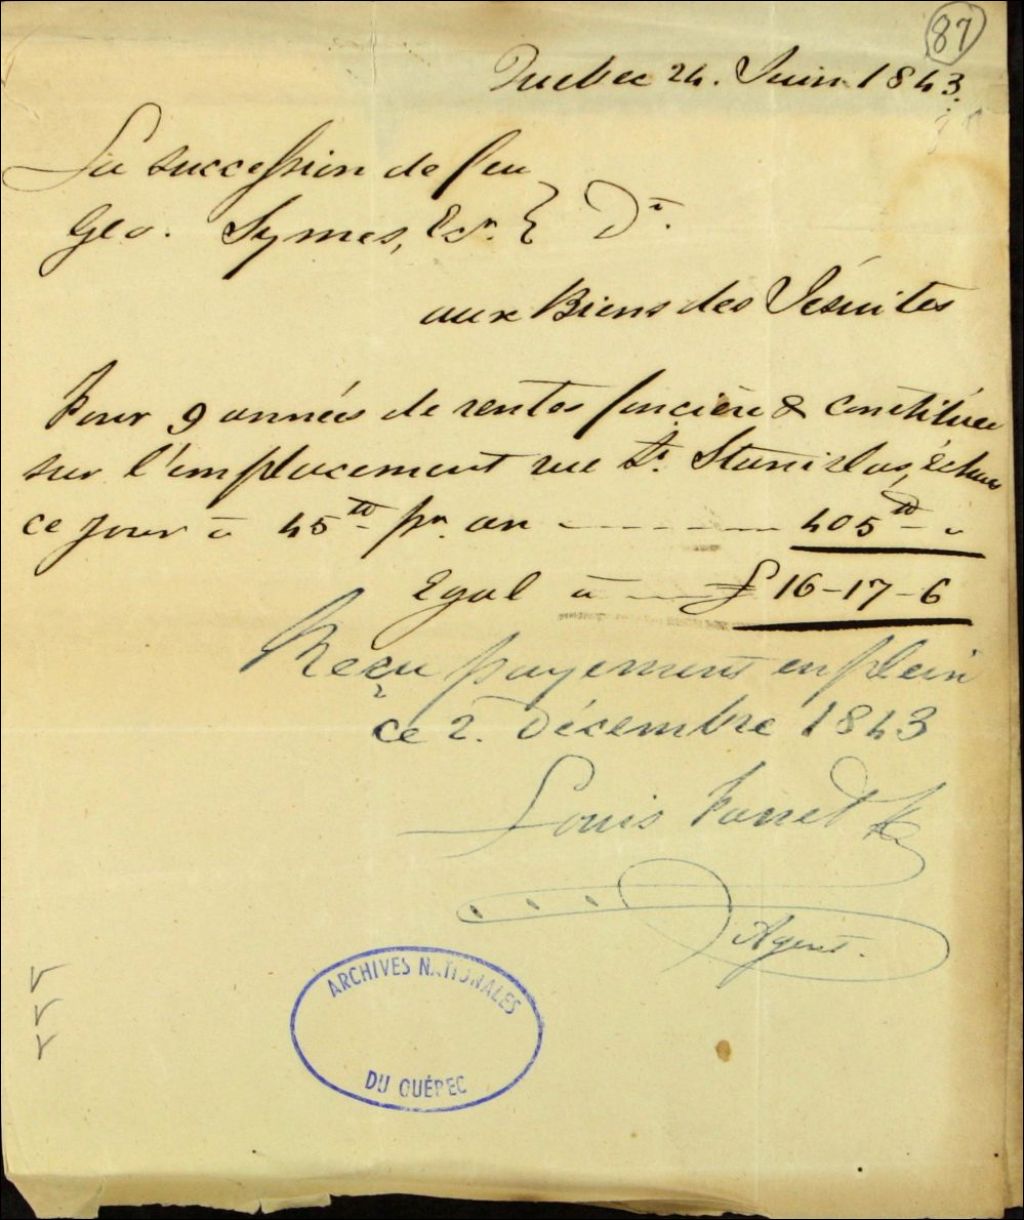 87
Quebec 24. Juin 1843.
La succession de feu
Geo. Symes, Ecr. } Dr.
aux Biens des Jésuites
Pour 9 années de rentes foncière & constituée
sur l'emplacement rue St. Stanislas, échues
ce jour à 45tt pr. an 405tt "
Egal à £16-17-6
Reçu payement en plein
ce 2. Décembre 1843
Louis Panet
Agent.
ARCHIVES NATIONALES
DU QUÉBEC